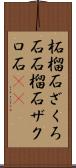 柘榴石ざくろ
石石榴石ザク
ロ石（（